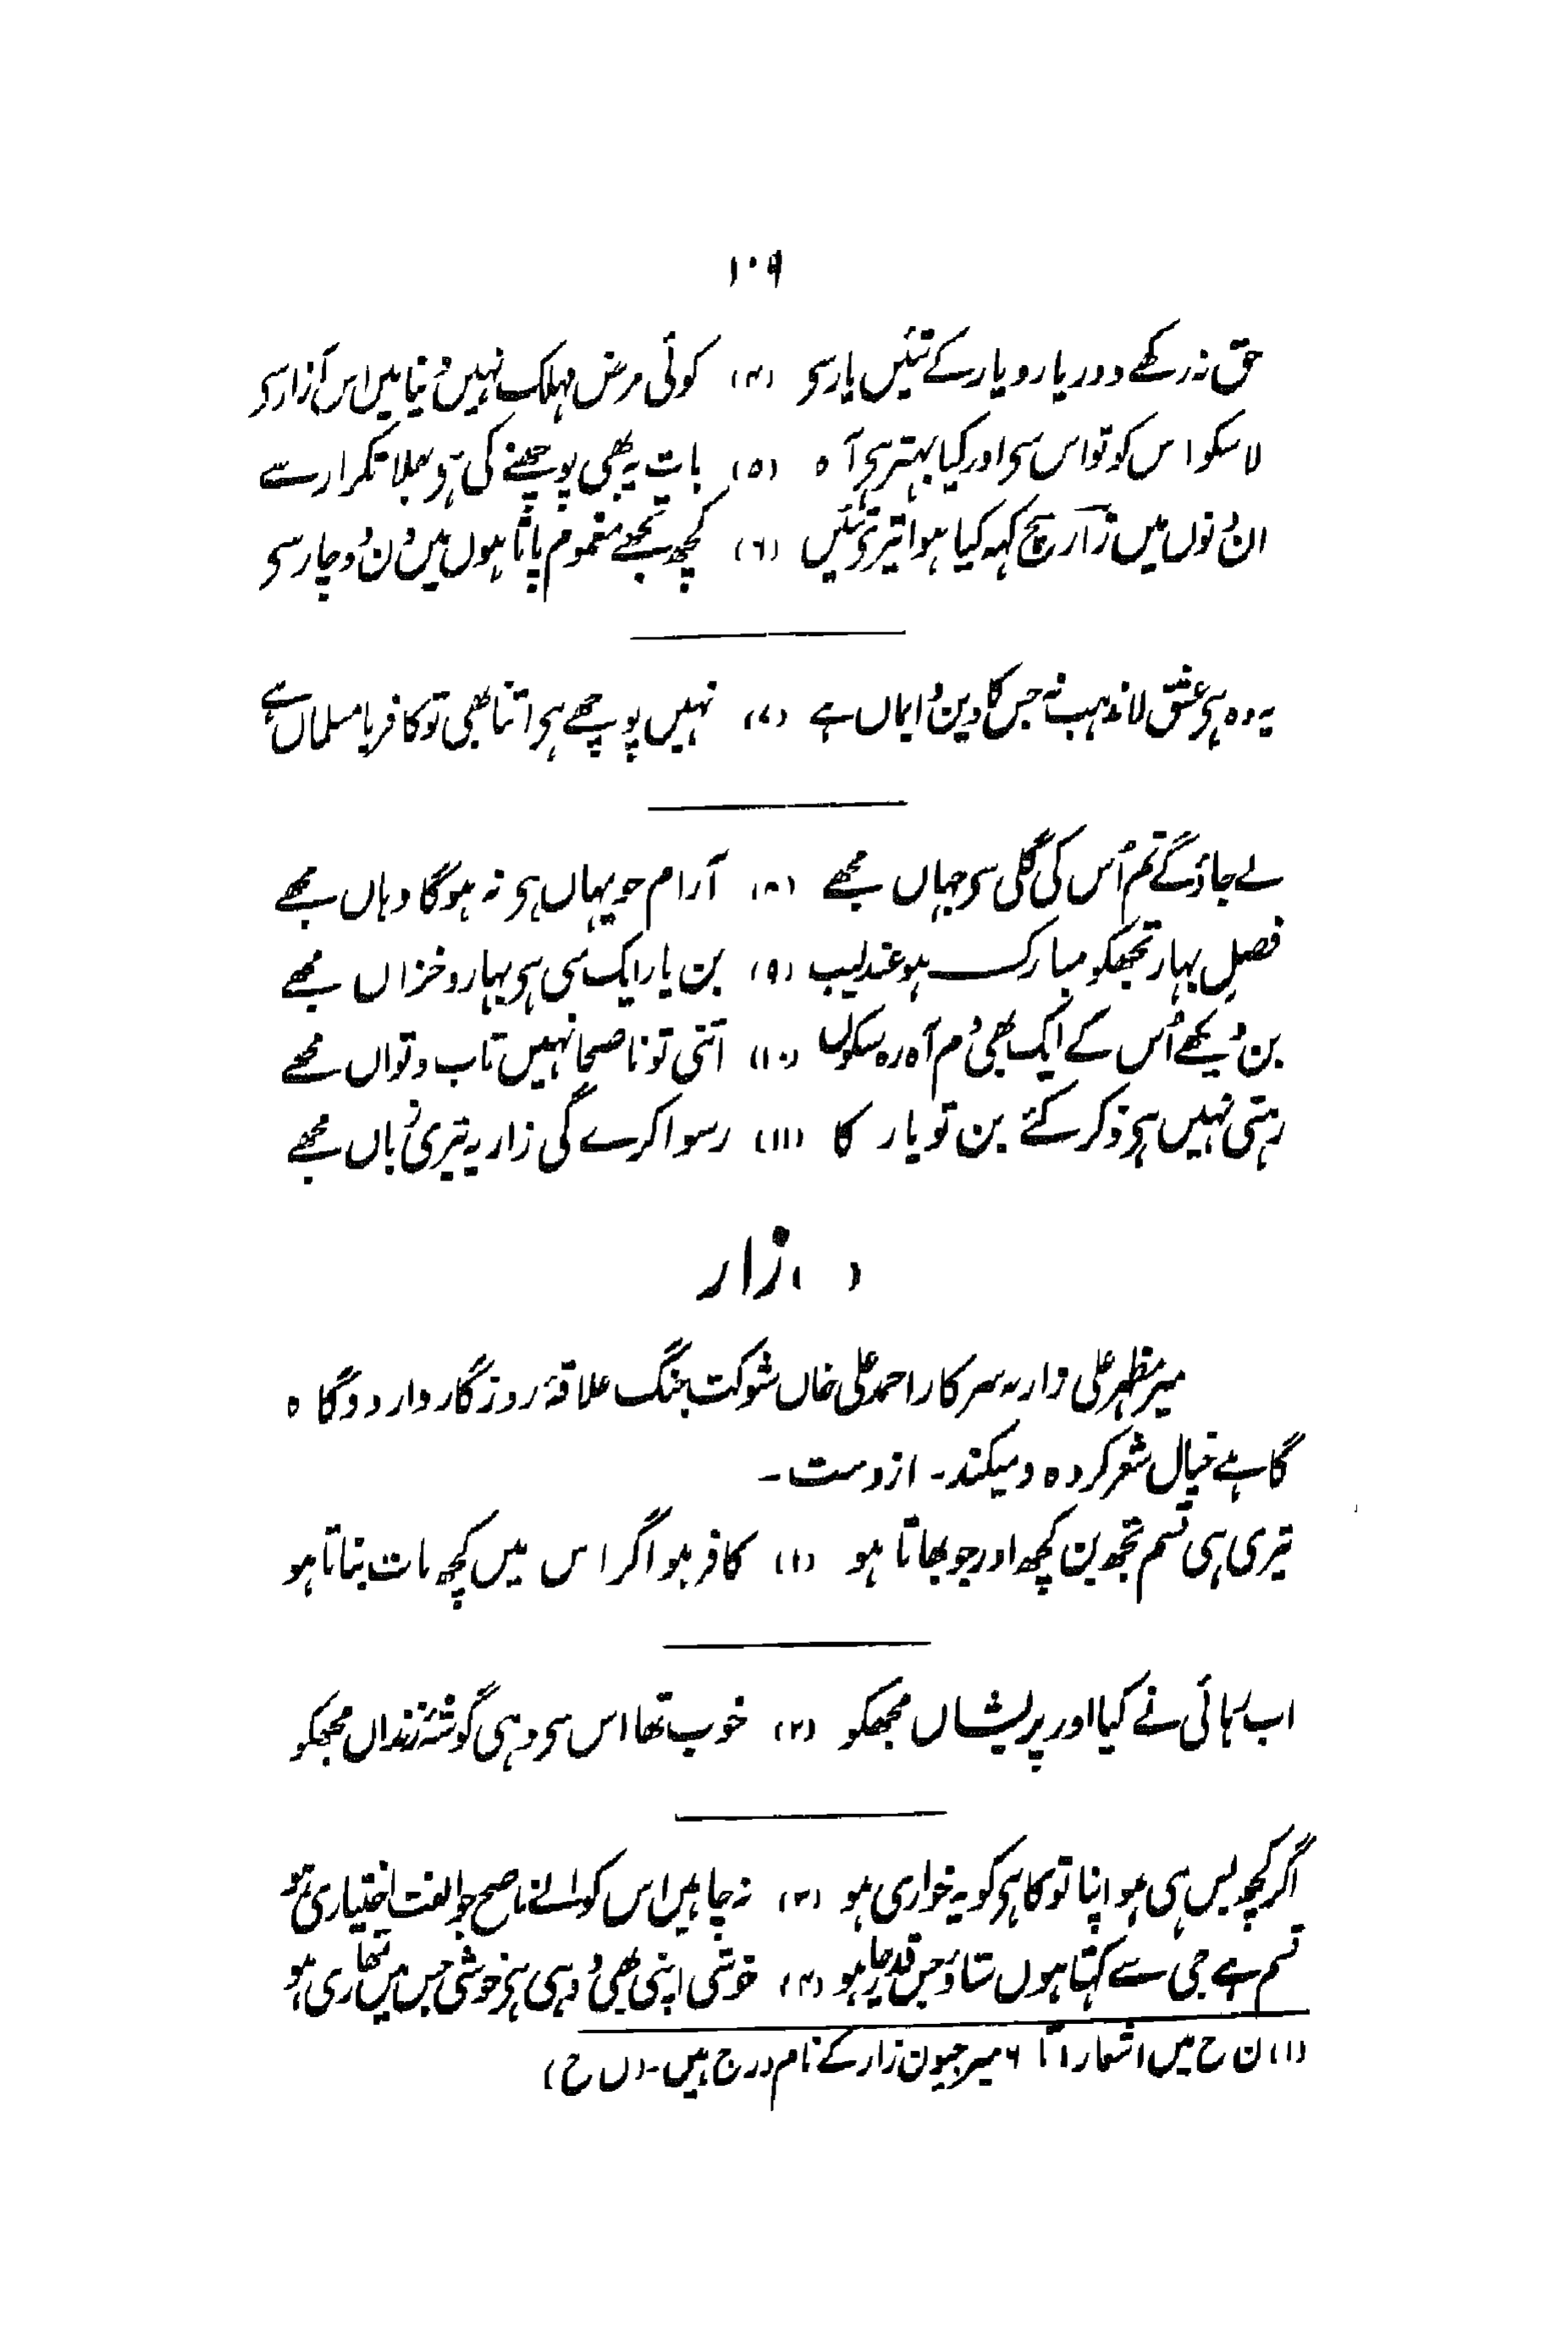 ۱۰۹
حق نہ رکھے دور یارو یار کے تئیں یار سی (۴) کوئی مرض مہلک نہیں دنیا میں اس آزار سی
لا سکو اس کو تو اس سی اور کیا بہتر ہی آہ (۵) بات یہ بھی پوچھنے کی ہی بھلا تکرار سے
ان دنوں میں زار سچ کہہ کیا ہوا تیری تئیں (۶) کچھ تجھے مغموم پاتا ہوں میں دن دو چار سی
یہ وہ ہی عشق لامذہب نہ جس کا دین و ایماں ہے (۷) نہیں پوچھے ہی اتنا بھی تو کافر یا مسلماں ہے
لے جاؤگے تم اُس کی گلی سی جہاں مجھے (۸) آرام جو یہاں ہی نہ ہوگا وہاں مجھے
فصلِ بہار تجھکو مبارک ہو عندلیب (۹) بن یار ایک سی ہی بہار و خزاں مجھے
بن دیکھے اُس کے ایک بھی دم آہ رہ سکوں (۱۰) اتنی تو ناصحا نہیں تاب و تواں مجھے
رہتی نہیں ہی ذکر کئے بن تو یار کا (۱۱) رسوا کرے گی زار یہ تیری زباں مجھے
(۱) زار
میر مظہر علی زار بہ سرکار احمد علی خاں شوکت جنگ علاقۂ روزگار دارد و گاہ
گاہے خیال شعر کردہ و میکند۔ ازوست۔
تیری ہی قسم تجھ بن کچھ اور جو بھاتا ہو (۱) کافر ہو اگر اس میں کچھ بات بناتا ہو
اب رہائی نے کیا اور پریشاں مجھکو (۲) خوب تھا اس سی وہی گوشۂ زنداں مجھکو
اگر کچھ بس ہی ہو اپنا تو کاہی کو یہ خواری ہو (۳) نہ چاہیں اس کو اے ناصح جو الفت اختیاری ہو
قسم ہے جی سے کہتا ہوں ستاؤ جس قدر چاہو (۴) خوشی اپنی بھی وہی ہی خوشی جس میں تمھاری ہو
(۱) ن ح میں اشعار ۱ تا ۶ میر جیون زار کے نام درج ہیں۔ (ل ح)